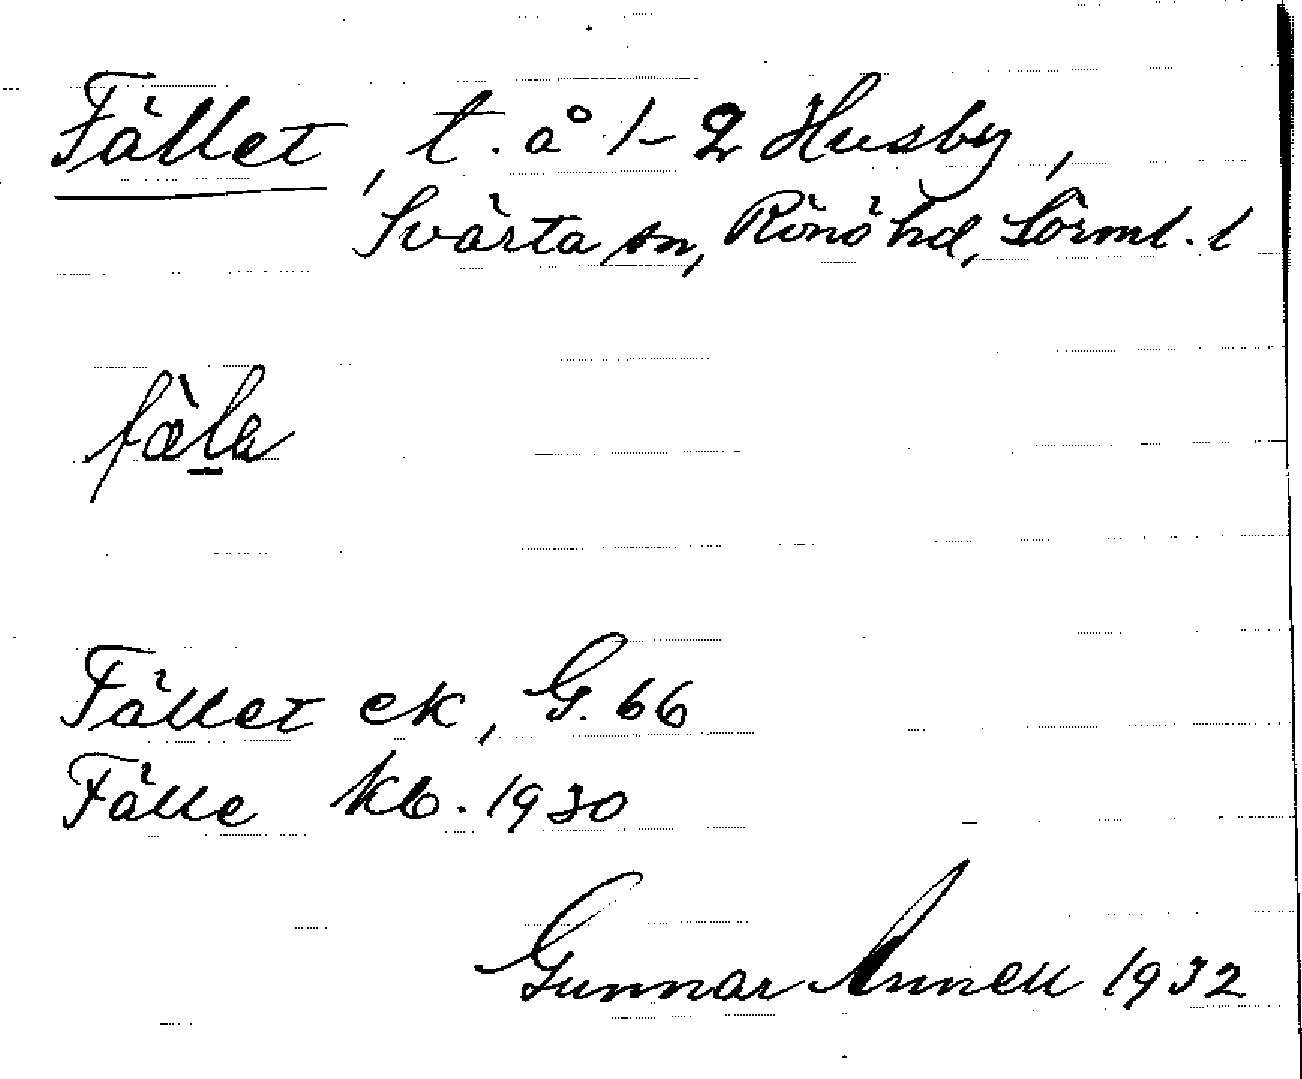 Fället, t. å 1-2 Husby,
Svärta sn, Rönö hd, Sörml. l
fàla
Fället ek, G. 66
Fälle kb. 1930
Gunnar Annell 1932